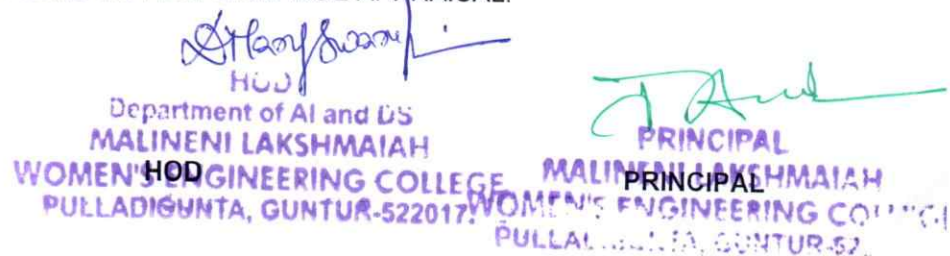 HOD
Department of AI and DS
MALINENI LAKSHMAIAH
WOMEN'S ENGINEERING COLLEGE
PULLADIGUNTA, GUNTUR-522017.
HOD
PRINCIPAL
MALINENI LAKSHMAIAH
WOMEN'S ENGINEERING
GUNTUR-52
PRINCIPAL